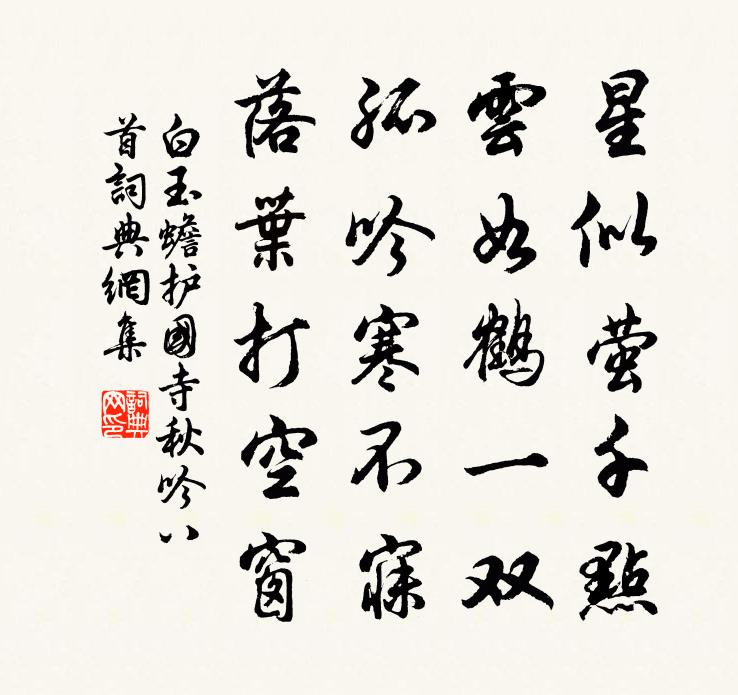 星似萤千點
雲如鶴一双
孤吟寒不寐
落葉打空窗
白玉蟾护國寺秋吟八
首詞典網集
詞典网印